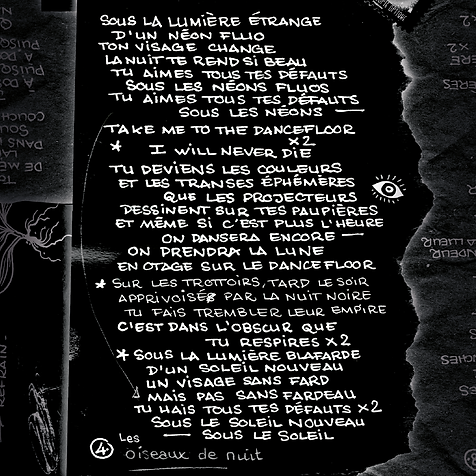 SOUS LA LUMIÈRE ÉTRANGE
D'UN NÉON FLUO
TON VISAGE CHANGE
LA NUIT TE REND SI BEAU
TU AIMES TOUS TES DÉFAUTS
SOUS LES NÉONS FLUOS
TU AIMES TOUS TES DÉFAUTS
SOUS LES NÉONS —
TAKE ME TO THE DANCEFLOOR
X2
* I WILL NEVER DIE
TU DEVIENS LES COULEURS
ET LES TRANSES ÉPHÉMÈRES
QUE LES PROJECTEURS
DESSINENT SUR TES PAUPIÈRES
ET MÊME SI C'EST PLUS L'HEURE
ON DANSERA ENCORE —
ON PRENDRA LA LUNE
EN OTAGE SUR LE DANCEFLOOR
* SUR LES TROTTOIRS, TARD LE SOIR
APPRIVOISÉS PAR LA NUIT NOIRE
TU FAIS TREMBLER LEUR EMPIRE
C'EST DANS L'OBSCUR QUE
TU RESPIRES X2
* SOUS LA LUMIÈRE BLAFARDE
D'UN SOLEIL NOUVEAU
UN VISAGE SANS FARD
MAIS PAS SANS FARDEAU
TU HAIS TOUS TES DÉFAUTS X2
SOUS LE SOLEIL NOUVEAU
— SOUS LE SOLEIL
4 Les
oiseaux de nuit
REFRAIN